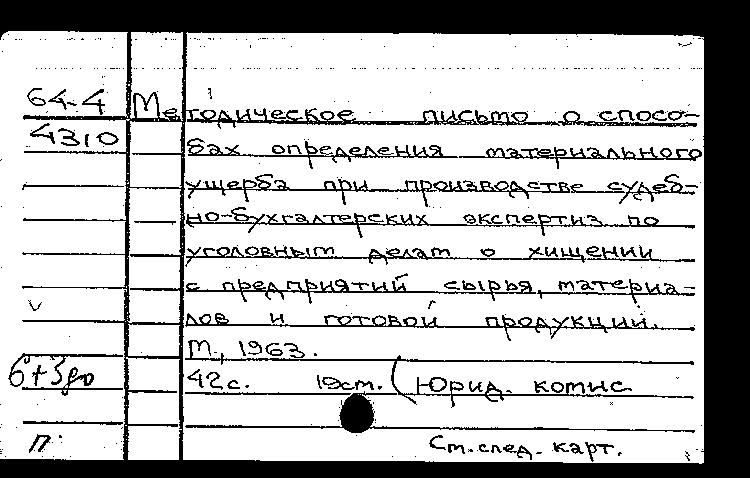 64-4 Методическое письмо о спосо-
4310 бах определения материального
ущерба при производстве судеб-
но-бухгалтерских экспертиз по
уголовным делам о хищении
с предприятий сырья, материа-
лов и готовой продукции.
М., 1963.
42 с. 10см. (Юрид. комис
П. См. след. карт.